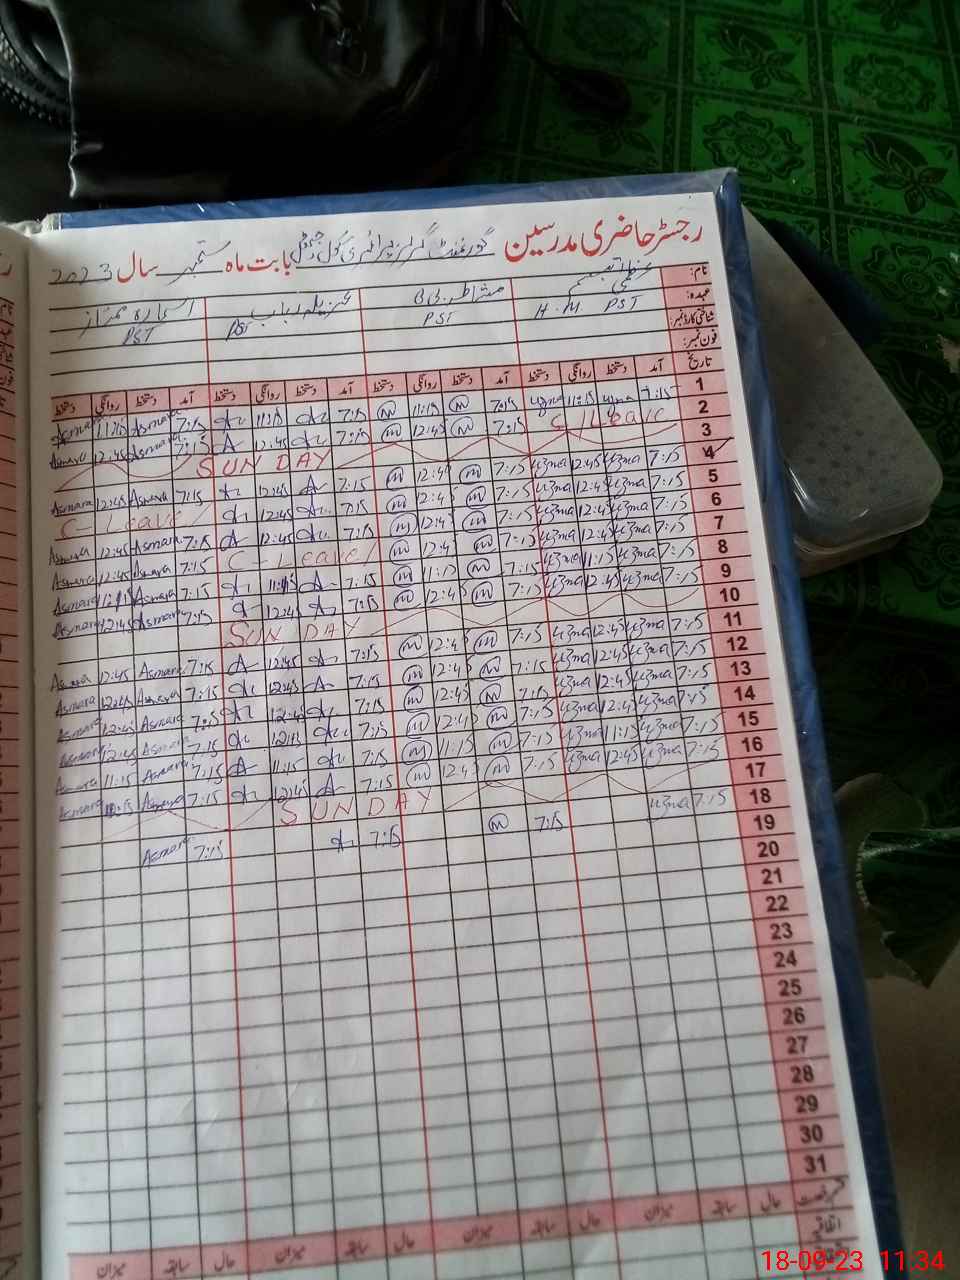 رجسٹر حاضری مدرسین گورنمنٹ گرلز پرائمری بابت ماہ ستمبر سال 2023
نام:
عہدہ: H.M PST PST PST PST
شناختی کارڈ نمبر:
فون نمبر:
تاریخ آمد دستخط روانگی دستخط آمد دستخط روانگی دستخط آمد دستخط روانگی دستخط آمد دستخط روانگی دستخط
1 7:15 uzma 11:15 uzma 7:15 m 11:15 m 7:15 11:15 7:15 Asmara 11:15 Asmara
2 C/Leave 7:15 m 12:45 m 7:15 12:45 7:15 Asmara 12:45 Asmara
3 SUNDAY
4 7:15 uzma 12:45 uzma 7:15 m 12:45 m 7:15 12:45 7:15 Asmara 12:45 Asmara
5 7:15 uzma 12:45 uzma 7:15 m 12:45 m 7:15 12:45 C-Leave
6 7:15 uzma 12:45 uzma 7:15 m 12:45 m 7:15 12:45 7:15 Asmara 12:45 Asmara
7 7:15 uzma 12:45 uzma 7:15 m 12:45 m C-Leave 7:15 Asmara 12:45 Asmara
8 7:15 uzma 11:15 uzma 7:15 m 11:15 m 7:15 11:15 7:15 Asmara 11:15 Asmara
9 7:15 uzma 12:45 uzma 7:15 m 12:45 m 7:15 12:45 7:15 Asmara 12:45 Asmara
10 SUNDAY
11 7:15 uzma 12:45 uzma 7:15 m 12:45 m 7:15 12:45 7:15 Asmara 12:45 Asmara
12 7:15 uzma 12:45 uzma 7:15 m 12:45 m 7:15 12:45 7:15 Asmara 12:45 Asmara
13 7:15 uzma 12:45 uzma 7:15 m 12:45 m 7:15 12:45 7:15 Asmara 12:45 Asmara
14 7:15 uzma 12:45 uzma 7:15 m 12:45 m 7:15 7:15 Asmara 12:45 Asmara
15 7:15 uzma 11:15 uzma 7:15 m 11:15 m 7:15 11:15 7:15 Asmara 11:15 Asmara
16 7:15 uzma 12:45 uzma 7:15 m 12:45 m 7:15 12:45 7:15 Asmara Asmara
17 SUNDAY
18 7:15 uzma 7:15 m 7:15 7:15 Asmara
19
20
21
22
23
24
25
26
27
28
29
30
31
حال سابقہ میزان حال سابقہ میزان حال سابقہ میزان حال سابقہ میزان
اتفاقیہ
18-09-23 11:34